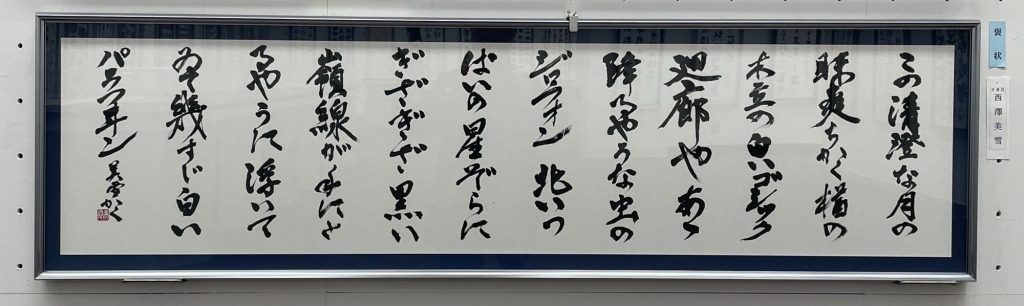 この清澄な月の
昧爽ちかく楢の
木立の白いゴシック
廻廊やあゝ
降るやうな虫の
ジロフォン 北いつ
ぱいの星ぞらに
ぎざぎざ黒い
嶺線が手にと
るやうに浮いて
ゐて幾すじ白い
パラフヰン 美雪かく
褒状
西澤美雪